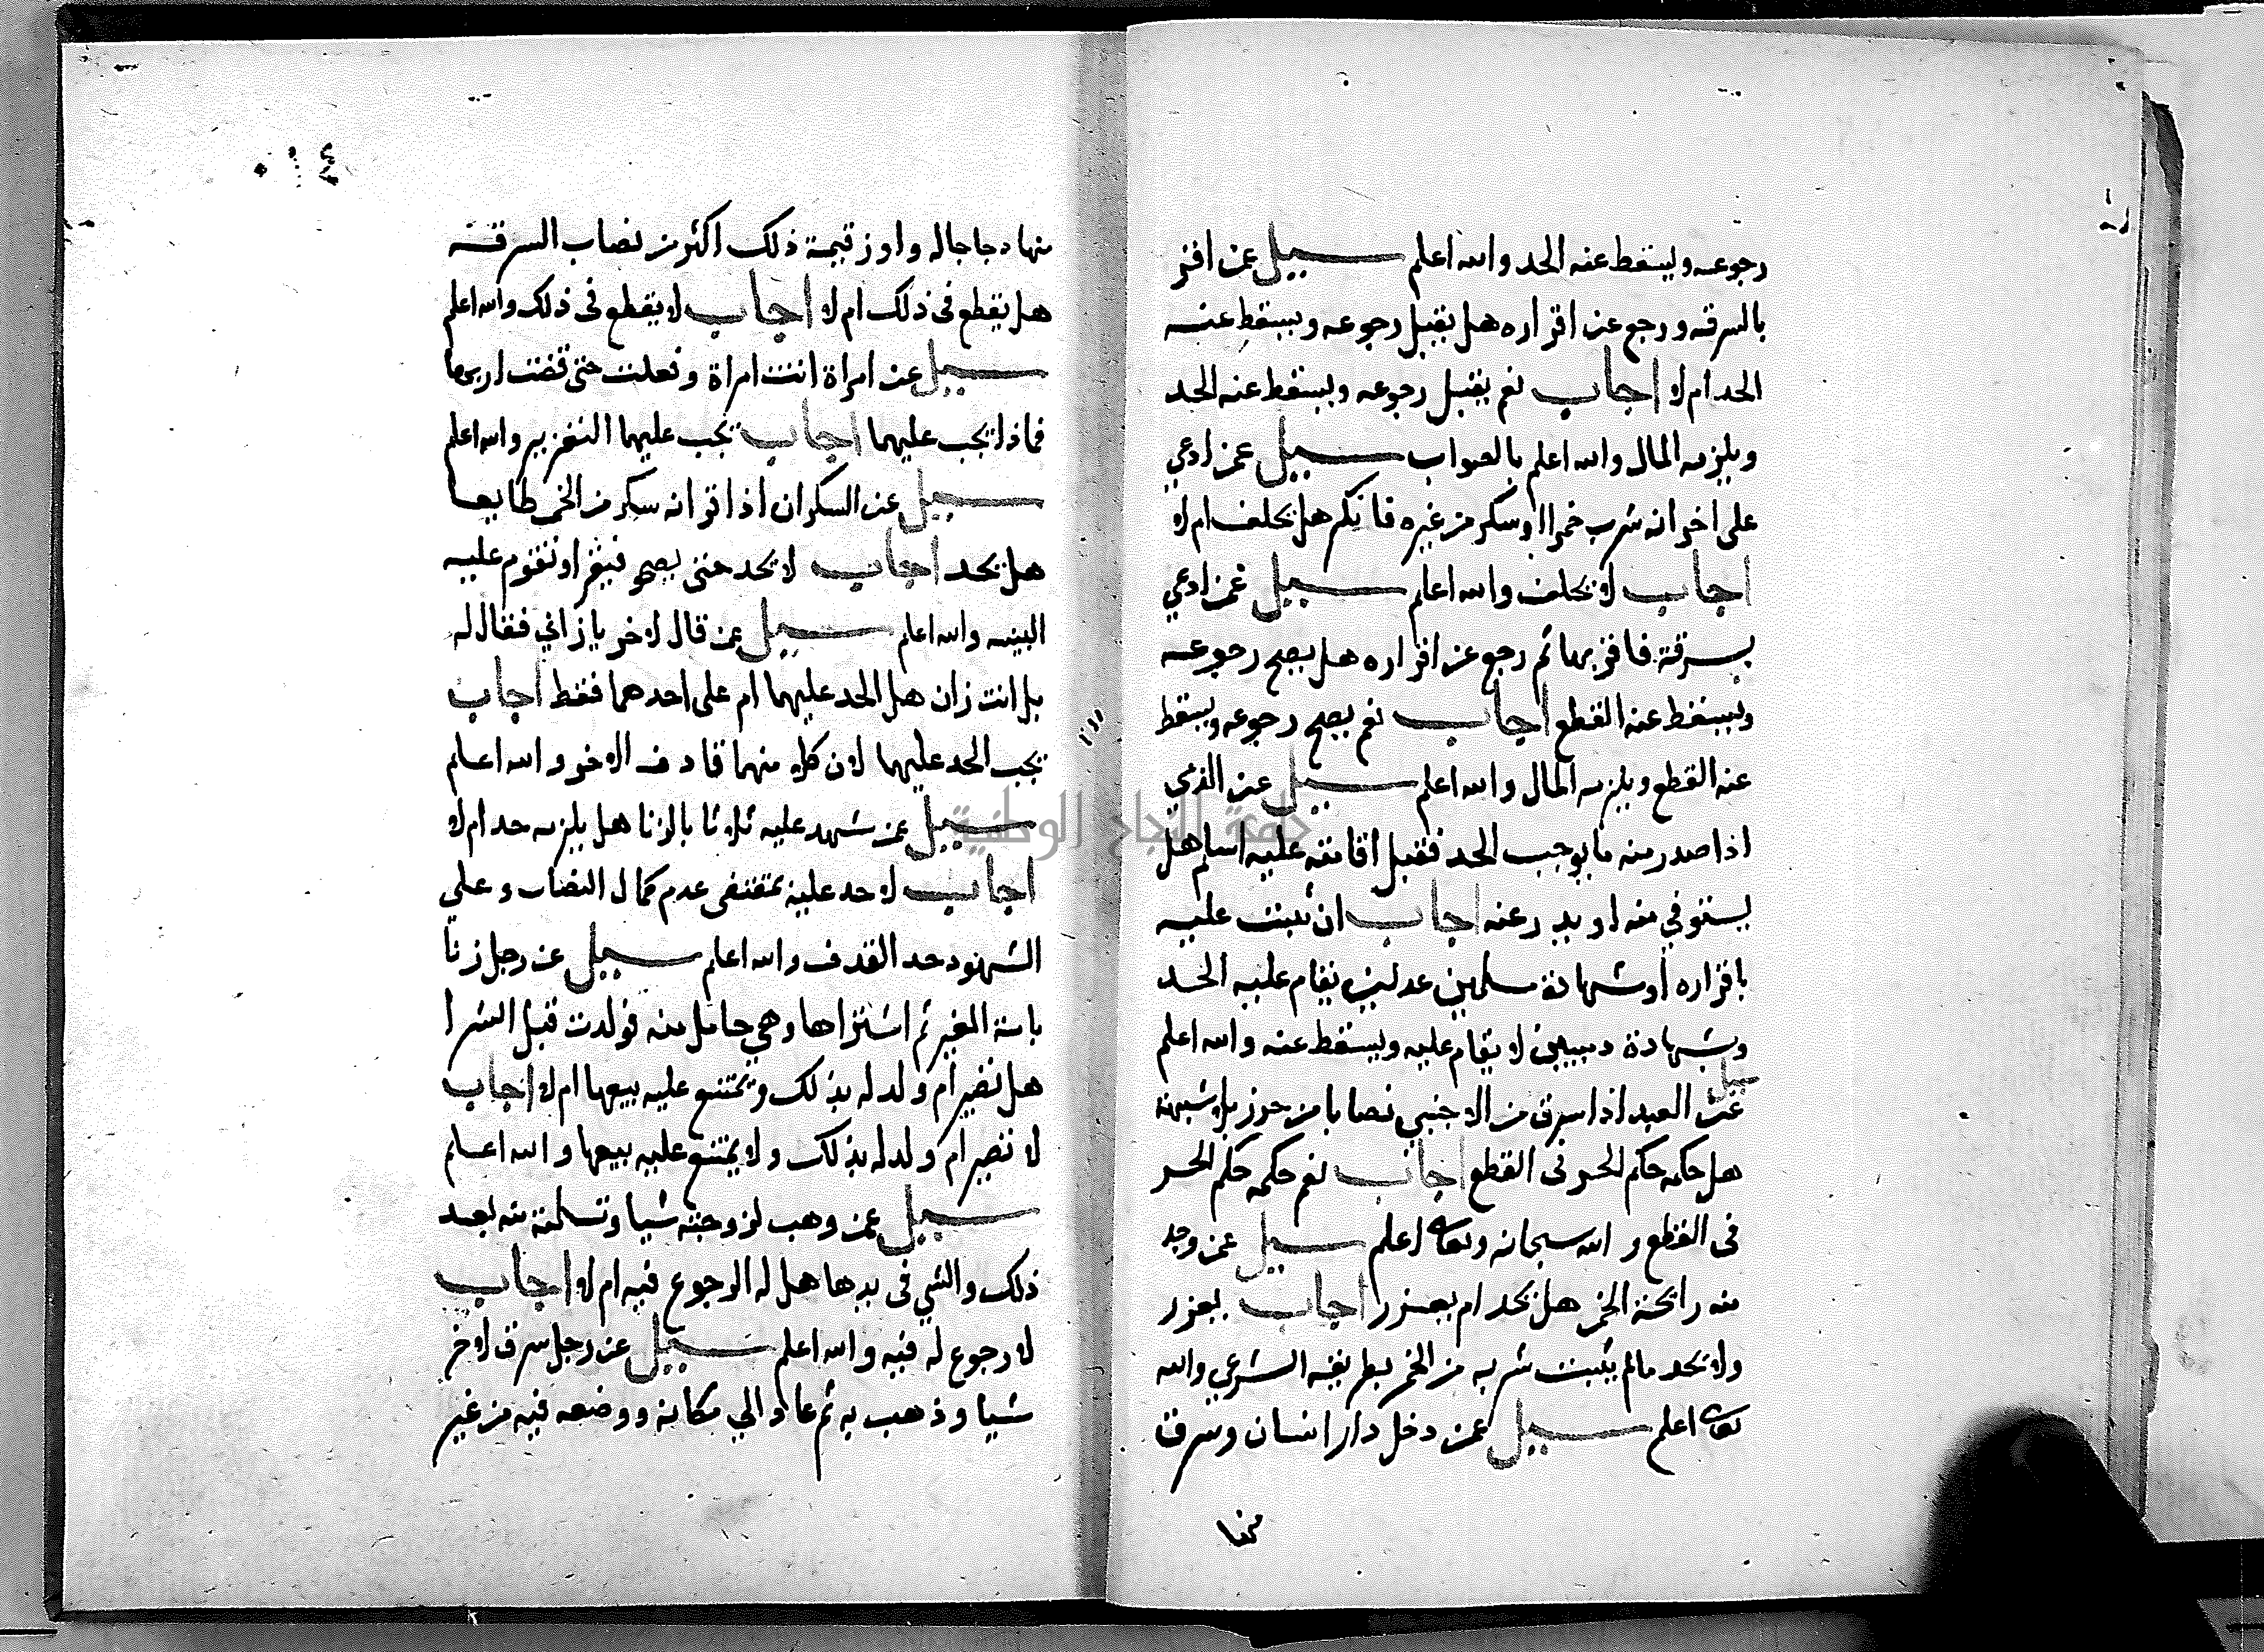 رجوعه ويسقط عنه الحد والله اعلم سيل عمن اقر
بالسرقه ورجع عن اقراره هل يقبل رجوعه ويسقط عنه
الحد ام لا اجاب نعم يقبل رجوعه ويسقط عنه الحد
ويلزمه المال والله اعلم بالصواب سيل عمن ادعي
على اخر انه شرب خمرا او سكر من غيره فانكر هل يحلف ام لا
اجاب لا يحلف والله اعلم سيل عمن ادعي
بسرقة فاقر بها ثم رجع عن اقراره هل يصح رجوعه
ويسقط عنه القطع اجاب نعم يصح رجوعه ويسقط
عنه القطع ويلزمه المال والله اعلم سيل عن الذمي
اذا صدر منه ما يوجب الحد فقبل اقامته عليه اسلم هل
يستوفي منه او يدرعنه اجاب ان ثبت عليه
باقراره او شهادة مسلمين عدلين يقام عليه الحد
وشهادة دميين لا يقام عليه ويسقط عنه والله اعلم
سيل
عن العبد اذا سرق من الاجنبي نصابا من حرز بلا شبهة
هل حكمه حكم الحر فى القطع اجاب نعم حكمه حكم الحر
فى القطع والله سبحانه وتعالى اعلم سيل عمن وجد
منه رائحة الخمر هل يحد ام يعزر اجاب يعزر
ولا يحد مالم يثبت شربه من الخمر بطريقه الشرعي والله
تعالى اعلم سيل عمن دخل دار انسان وسرق
منها
٠١٤
منها دجاجاله واوز قيمة ذلك اكثر من نصاب السرقة
هل يقطع فى ذلك ام لا اجاب لا يقطع فى ذلك والله اعلم
سيل عن امراة اتت امراة وفعلت حتى قضت اربها
فماذا يجب عليهما اجاب يجب عليهما التعزير والله اعلم
سيل عن السكران اذا اقر انه سكر من الخمر طايعا
هل يحد اجاب لا يحد حتى يصحو فيقر او تقوم عليه
البينه والله اعلم سيل عمن قال لاخر يا زاني فقال له
بل انت زان هل الحد عليهما ام على احدهما فقط اجاب
يجب الحد عليهما لان كلا منهما قادف الاخر والله اعلم
سيل عمن شهد عليه ثلاثا بالزنا هل يلزمه حد ام لا
اجاب لا حد عليه بمقتضى عدم كمال النصاب وعلي
الشهود حد القدف والله اعلم سيل عن رجل زنا
بامة الغير ثم اشتراها وهي حامل منه فولدت قبل الشرا
هل تصير ام ولد له بذلك ويمتنع عليه بيعها ام لا اجاب
لا تصير ام ولد له بذلك ولا يمتنع عليه بيعها والله اعلم
سيل عمن وهب لزوجته شيا وتسلمته منه بعد
ذلك والشي فى يدها هل له الرجوع فيه ام لا اجاب
لا رجوع له فيه والله اعلم سيل عن رجل سرق لاخر
شيا وذهب به ثم عاد الي مكانه ووضعه فيه من غير
جامعة النجاح الوطنية